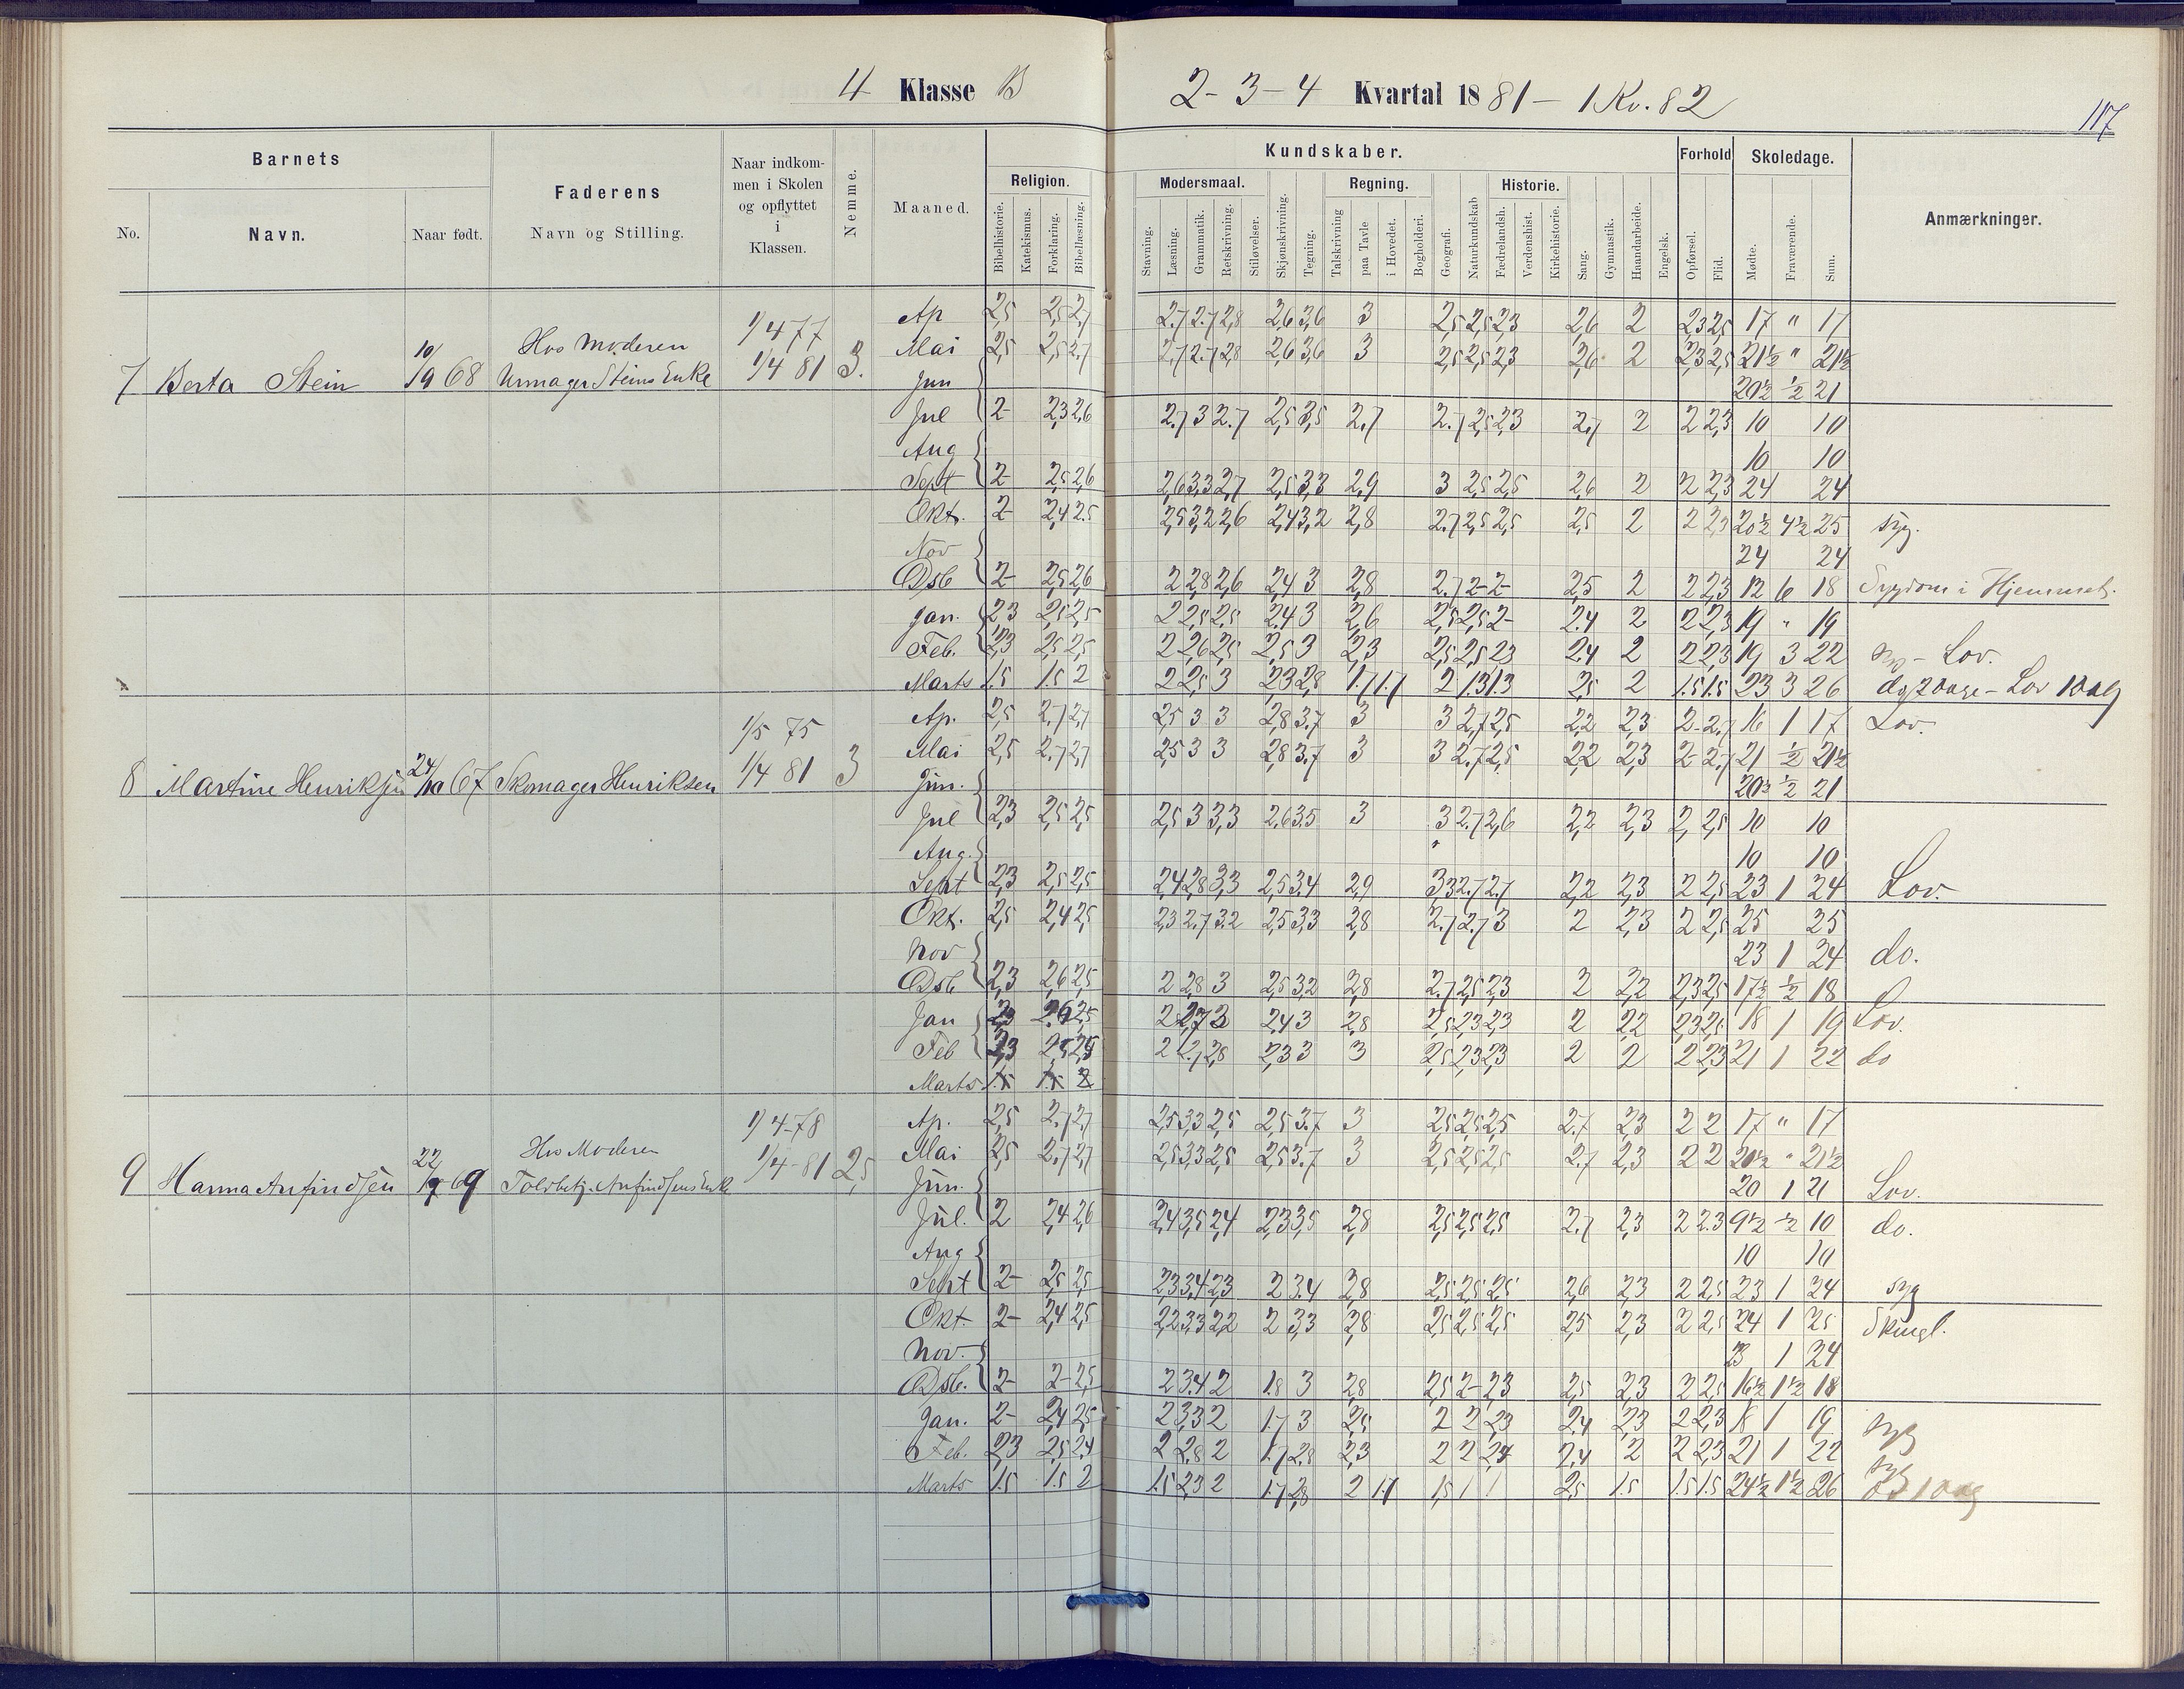 4 Klasse B
2 - 3 - 4 Kvartal 1881 - 1 Kv. 82
117
Barnets
No.
Navn.
Naar født.
Faderens
Navn og Stilling.
Naar indkom-
men i Skolen
og opflyttet
i
Klassen.
Nemme.
Maaned.
Kundskaber.
Religion.
Bibelhistorie.
Katekismus.
Forklaring.
Bibellæsning.
Modersmaal.
Stavning.
Læsning.
Grammatik.
Retskrivning.
Stiløvelser.
Skjønskrivning.
Tegning.
Regning.
Talskrivning
paa Tavle
i Hovedet.
Bogholderi.
Geografi.
Naturkundskab
Historie.
Fædrelandsh.
Verdenshist.
Kirkehistorie.
Sang.
Gymnastik.
Haandarbeide.
Engelsk.
Forhold
Opførsel.
Flid.
Skoledage.
Mødte.
Fraværende.
Sum.
Anmærkninger.
7 Berta Stein 10/9 68 Hos Moderen Urmager Steins Enke 1/4 77 1/4 81 3.
Ap 2,5 2,5 2,7 2.7 2.7 2,8 2,6 3,6 3 2,5 2,5 2,3 2,6 2 2,3 2,5 17 " 17
Mai 2,5 2,5 2,7 2.7 2.7 2,8 2,6 3,6 3 2,5 2,5 2,3 2,6 2 2,3 2,5 21½ " 21½
Jun 20½ ½ 21
Jul 2- 2,3 2,6 2.7 3 2.7 2,5 3,5 2,7 2.7 2,5 2,3 2,7 2 2 2,3 10 10
Aug 10 10
Sept 2- 2,5 2,6 2,6 3,3 2,7 2,5 3,3 2,9 3 2,5 2,5 2,6 2 2 2,3 24 24
Okt. 2- 2,4 2,5 2,5 3,2 2,6 2,4 3,2 2,8 2.7 2,5 2,5 2,5 2 2 2,3 20½ 4½ 25 syg.
Nov 24 24
Dsb 2- 2,5 2,6 2 2,8 2,6 2,4 3 2,8 2.7 2- 2- 2,5 2 2 2,3 12 6 18 Sygdom i Hjemmet.
Jan. 2,3 2,5 2,5 2 2,5 2,5 2,4 3 2,6 2,5 2,5 2- 2.4 2 2 2,3 19 " 19
Feb. 2,3 2,5 2,5 2 2,6 2,5 2,5 3 2,3 2,5 2,5 2,3 2.4 2 2 2,3 19 3 22 syg - Lov.
Marts 1.5 1.5 2 2 2,5 3 2,3 2,8 1.7 1.7 2 1.3 1.3 2,5 2 1.5 1.5 23 3 26
8 Martine Henriksen 24/10 67 Skomager Henriksen 1/5 75 1/4 81 3
Ap. 2,5 2,7 2,7 2,5 3 3 2,8 3.7 3 3 2,7 2,5 2,2 2,3 2- 2.7 16 1 17 Lov.
Mai 2,5 2,7 2,7 2,5 3 3 2,8 3.7 3 3 2.7 2,5 2,2 2,3 2- 2.7 21 ½ 21½
Jun. 20½ ½ 21
Jul 2,3 2,5 2,5 2,5 3 3,3 2,6 3.5 3 3 2.7 2,6 2,2 2,3 2 2,5 10 10
Aug. 10 10
Sept 2,3 2,5 2,5 2,4 2,8 3,3 2,5 3.4 2,9 3,3 2.7 2.7 2,2 2,3 2 2,5 23 1 24 Lov.
Okt. 2,5 2,4 2,5 2,3 2.7 3.2 2,5 3,3 2,8 2.7 2.7 3 2 2,3 2 2,5 25 25
Nov 23 1 24 do.
Dsb 2,3 2,6 2,5 2 2,8 3 2,5 3,2 2,8 2.7 2,5 2,3 2 2,2 2,3 2,5 17½ ½ 18
Jan 2,3 2,5 2 2,4 3 2,8 2,5 2,3 2,3 2 2,2 2,3 2,5 18 1 19 Lov.
Feb 2,3 2,5 2 2,7 2,8 2,3 3 3 2,5 2,3 2,3 2 2 2 2,3 21 1 22 do
Marts 1.5 1.5 2
9 Hanna Anfindsen 22/9 69 Hos Moderen Toldbetj. Anfindsens Enke 1/4-78 1/4-81 2,5
Ap. 2,5 2,7 2,7 2,5 3,3 2,5 2,5 3.7 3 2,5 2,5 2,5 2.7 2,3 2 2 17 " 17
Mai 2,5 2,7 2,7 2,5 3,3 2,5 2,5 3.7 3 2,5 2,5 2,5 2.7 2,3 2 2 21½ " 21½
Jun. 20 1 21 Lov.
Jul. 2 2,4 2,6 2,4 3,5 2,4 2,3 3,5 2,8 2,5 2,5 2,5 2.7 2,3 2 2.3 9½ ½ 10 do.
Aug 10 10
Sept 2- 2,5 2,5 2,3 3,4 2,3 2 3.4 2,8 2,5 2,5 2,5 2,6 2,3 2 2,5 23 1 24 syg
Okt. 2- 2,4 2,5 2,2 3,3 2,2 2 3,3 2,8 2,5 2,5 2,5 2,5 2,3 2 2,5 24 1 25
Nov. 23 1 24
Dsb. 2- 2- 2,5 2 3.4 2 1.8 3 2,8 2,5 2- 2,3 2,5 2,3 2 2,5 16½ 1½ 18
Jan. 2- 2,4 2,5 2 3,3 2 1.7 3 2,5 2 2 2,3 2.4 2,3 2 2,3 18 1 19 syg
Feb. 2,3 2,5 2,4 2 2,8 2 1.7 2.8 2,3 2 2 2,4 2,4 2 2 2,3 21 1 22 syg
Marts 1.5 1.5 2 1.5 2,3 2 1.7 2,8 2 1.7 1,5 1 1 2,5 1.5 1.5 1.5 24½ 1½ 26